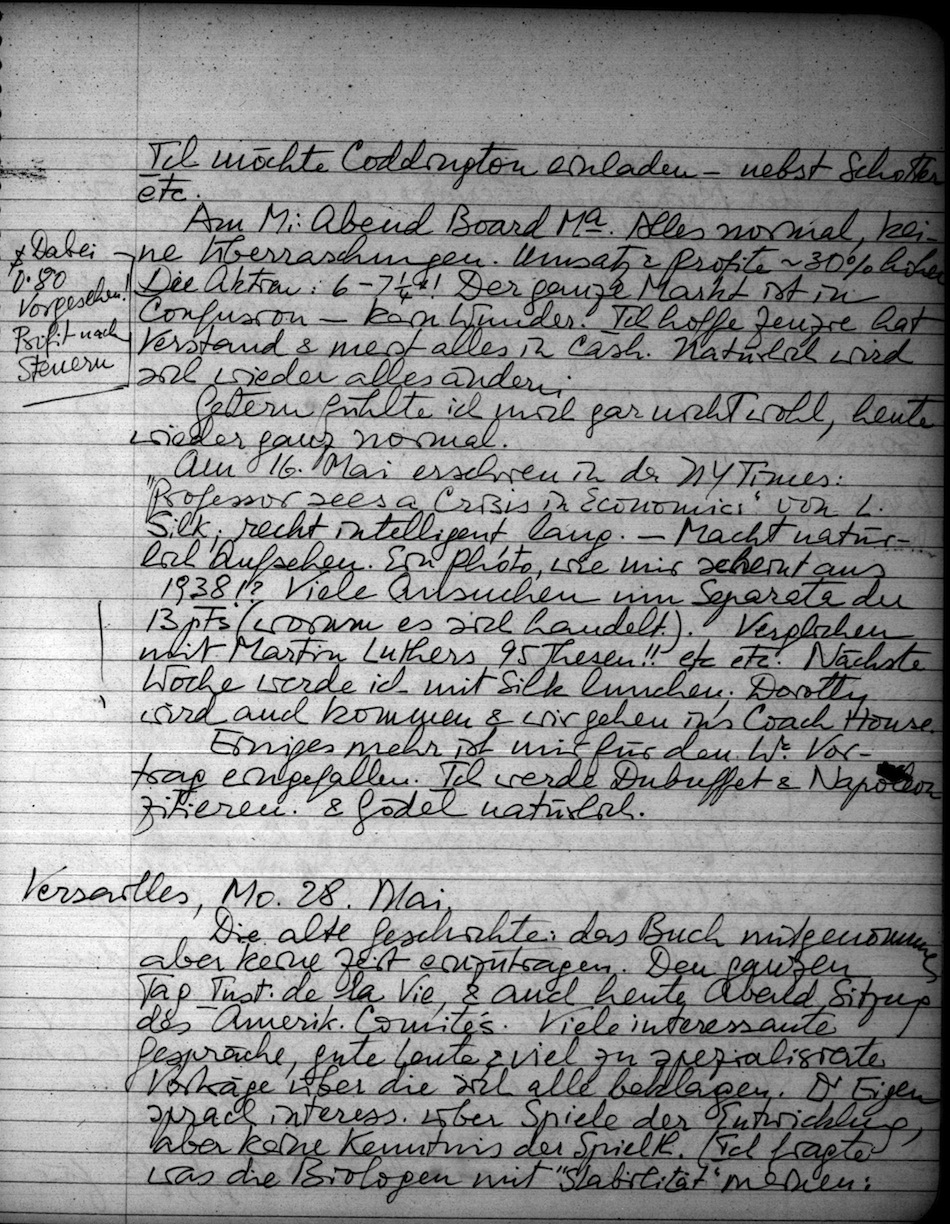 Ich möchte Coddington einladen – nebst Schotter
etc.
Am Mi Abend Board Mg. Alles normal, kei-
ne Überraschungen. Umsatz & Profite ~30% höher
Die Aktien: 6–7¼*! Der ganze Markt ist in
Confusion – kein Wunder. Ich hoffe hat
Verstand & meist alles in Cash. Natürlich wird
sich wieder alles ändern.
* Dabei
0.80
Vorgesehen!
Profit nach
Steuern
Gestern fühlte ich mich gar nicht wohl, heute
wieder ganz normal.
Am 16. Mai erschien in der NY Times:
"Professor sees a Crisis in Economics" von L.
Silk; recht intelligent lang. – Macht natür-
lich Aufsehen. Ein Photo, wie mir scheint aus
1938!? Viele Ansuchen um Separata der
13 pts (worum es sich handelt). Verglichen
mit Martin Luthers 95 Thesen!! etc etc. Nächste
Woche werde ich mit Silk lunchen; Dorothy
wird auch kommen & wir gehen ins Coach House.
Einiges mehr ist mir für den Wr. Vor-
trag eingefallen. Ich werde Dubuffet & Napoleon
zitieren. & Gödel natürlich.
Versailles, Mo. 28. Mai.
Die alte Geschichte: das Buch mitgenommen
aber keine Zeit einzutragen. Den ganzen
Tag Inst. de la Vie, & auch heute Abend Sitzung
des Amerik. Comités. Viele interessante
Gespräche, gute Leute & viel zu spezialisierte
Vorträge über die sich alle beklagen. Dr Eigen
sprach interess. über Spiele der Entwicklung,
aber keine Kenntnis der Spielth. (Ich fragte
was die Biologen mit "Stabilität" meinen: